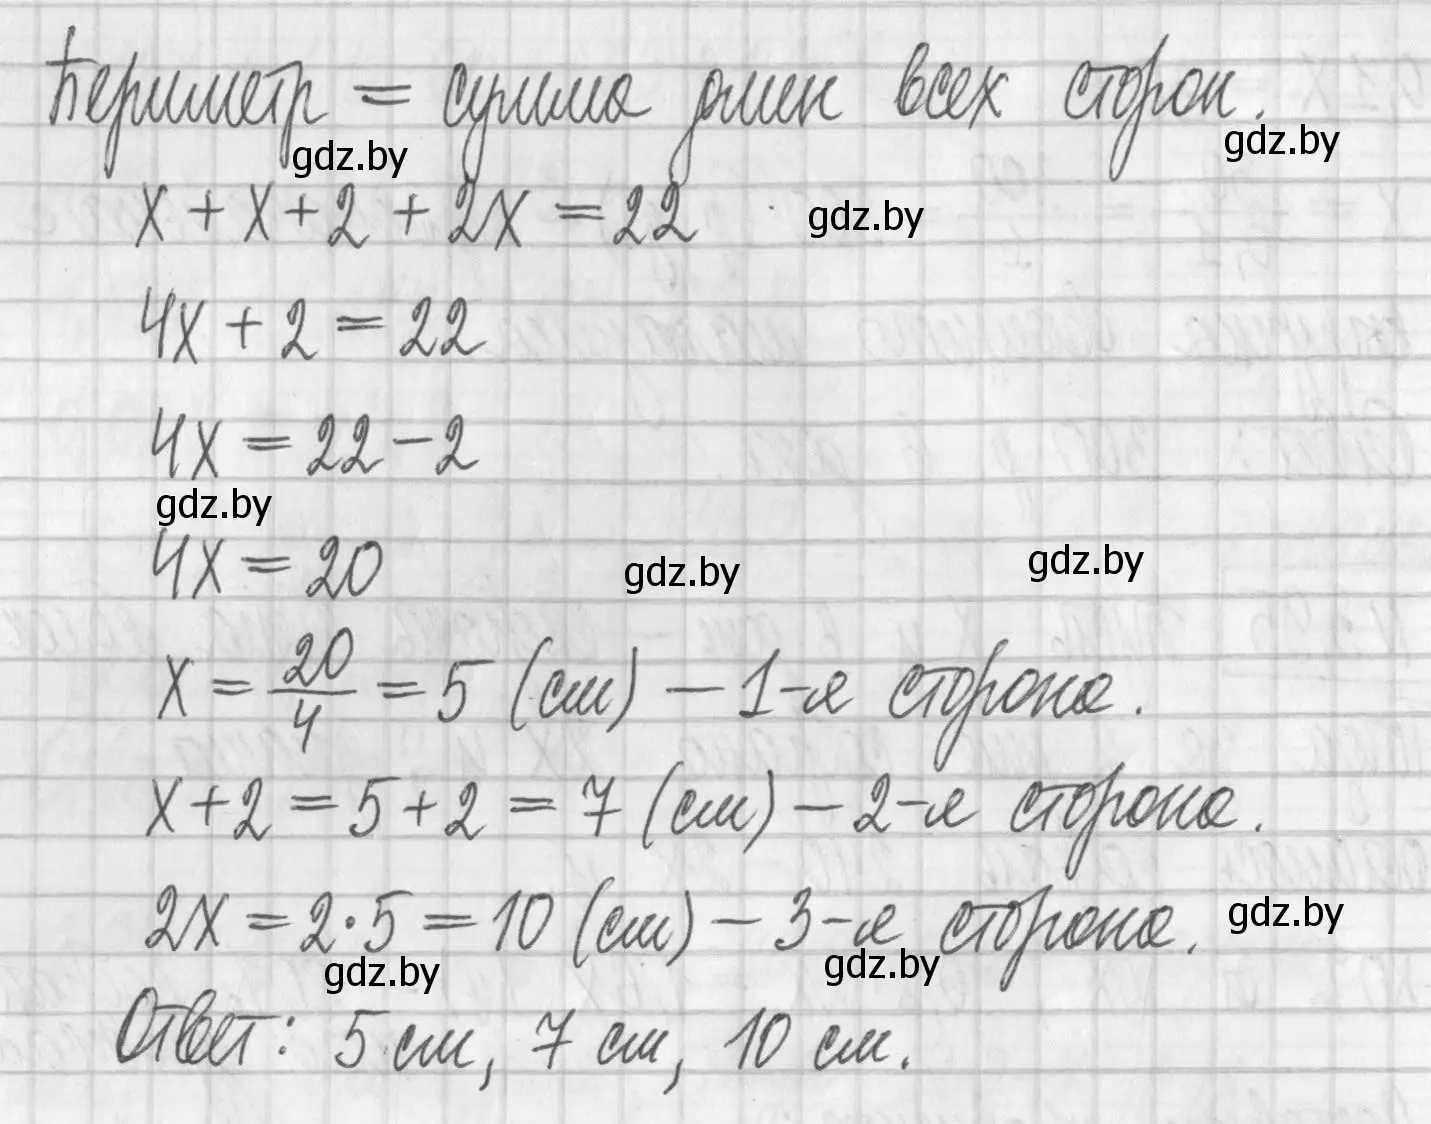 Периметр = сумма длин всех сторон.
gdz.by gdz.by
x + x + 2 + 2x = 22 gdz.by
4x + 2 = 22
4x = 22 - 2
gdz.by
4x = 20 gdz.by gdz.by
x = 20/4 = 5 (см) - 1-я сторона.
x + 2 = 5 + 2 = 7 (см) - 2-я сторона.
2x = 2·5 = 10 (см) - 3-я сторона. gdz.by
gdz.by gdz.by
Ответ: 5 см, 7 см, 10 см.